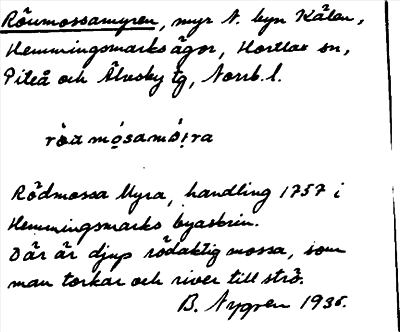 Röumossamyren, myr N. byn Kälen,
Hemmingsmarks ägor, Hortlax sn,
Piteå och Älvsby tg, Norrb. l.
röu mósamö́ra
Rödmossa Myra, handling 1757 i
Hemmingsmarks byaskrin.
Där är djup rödaktig mossa, som
man torkar och river till strö.
B. Nygren 1935.